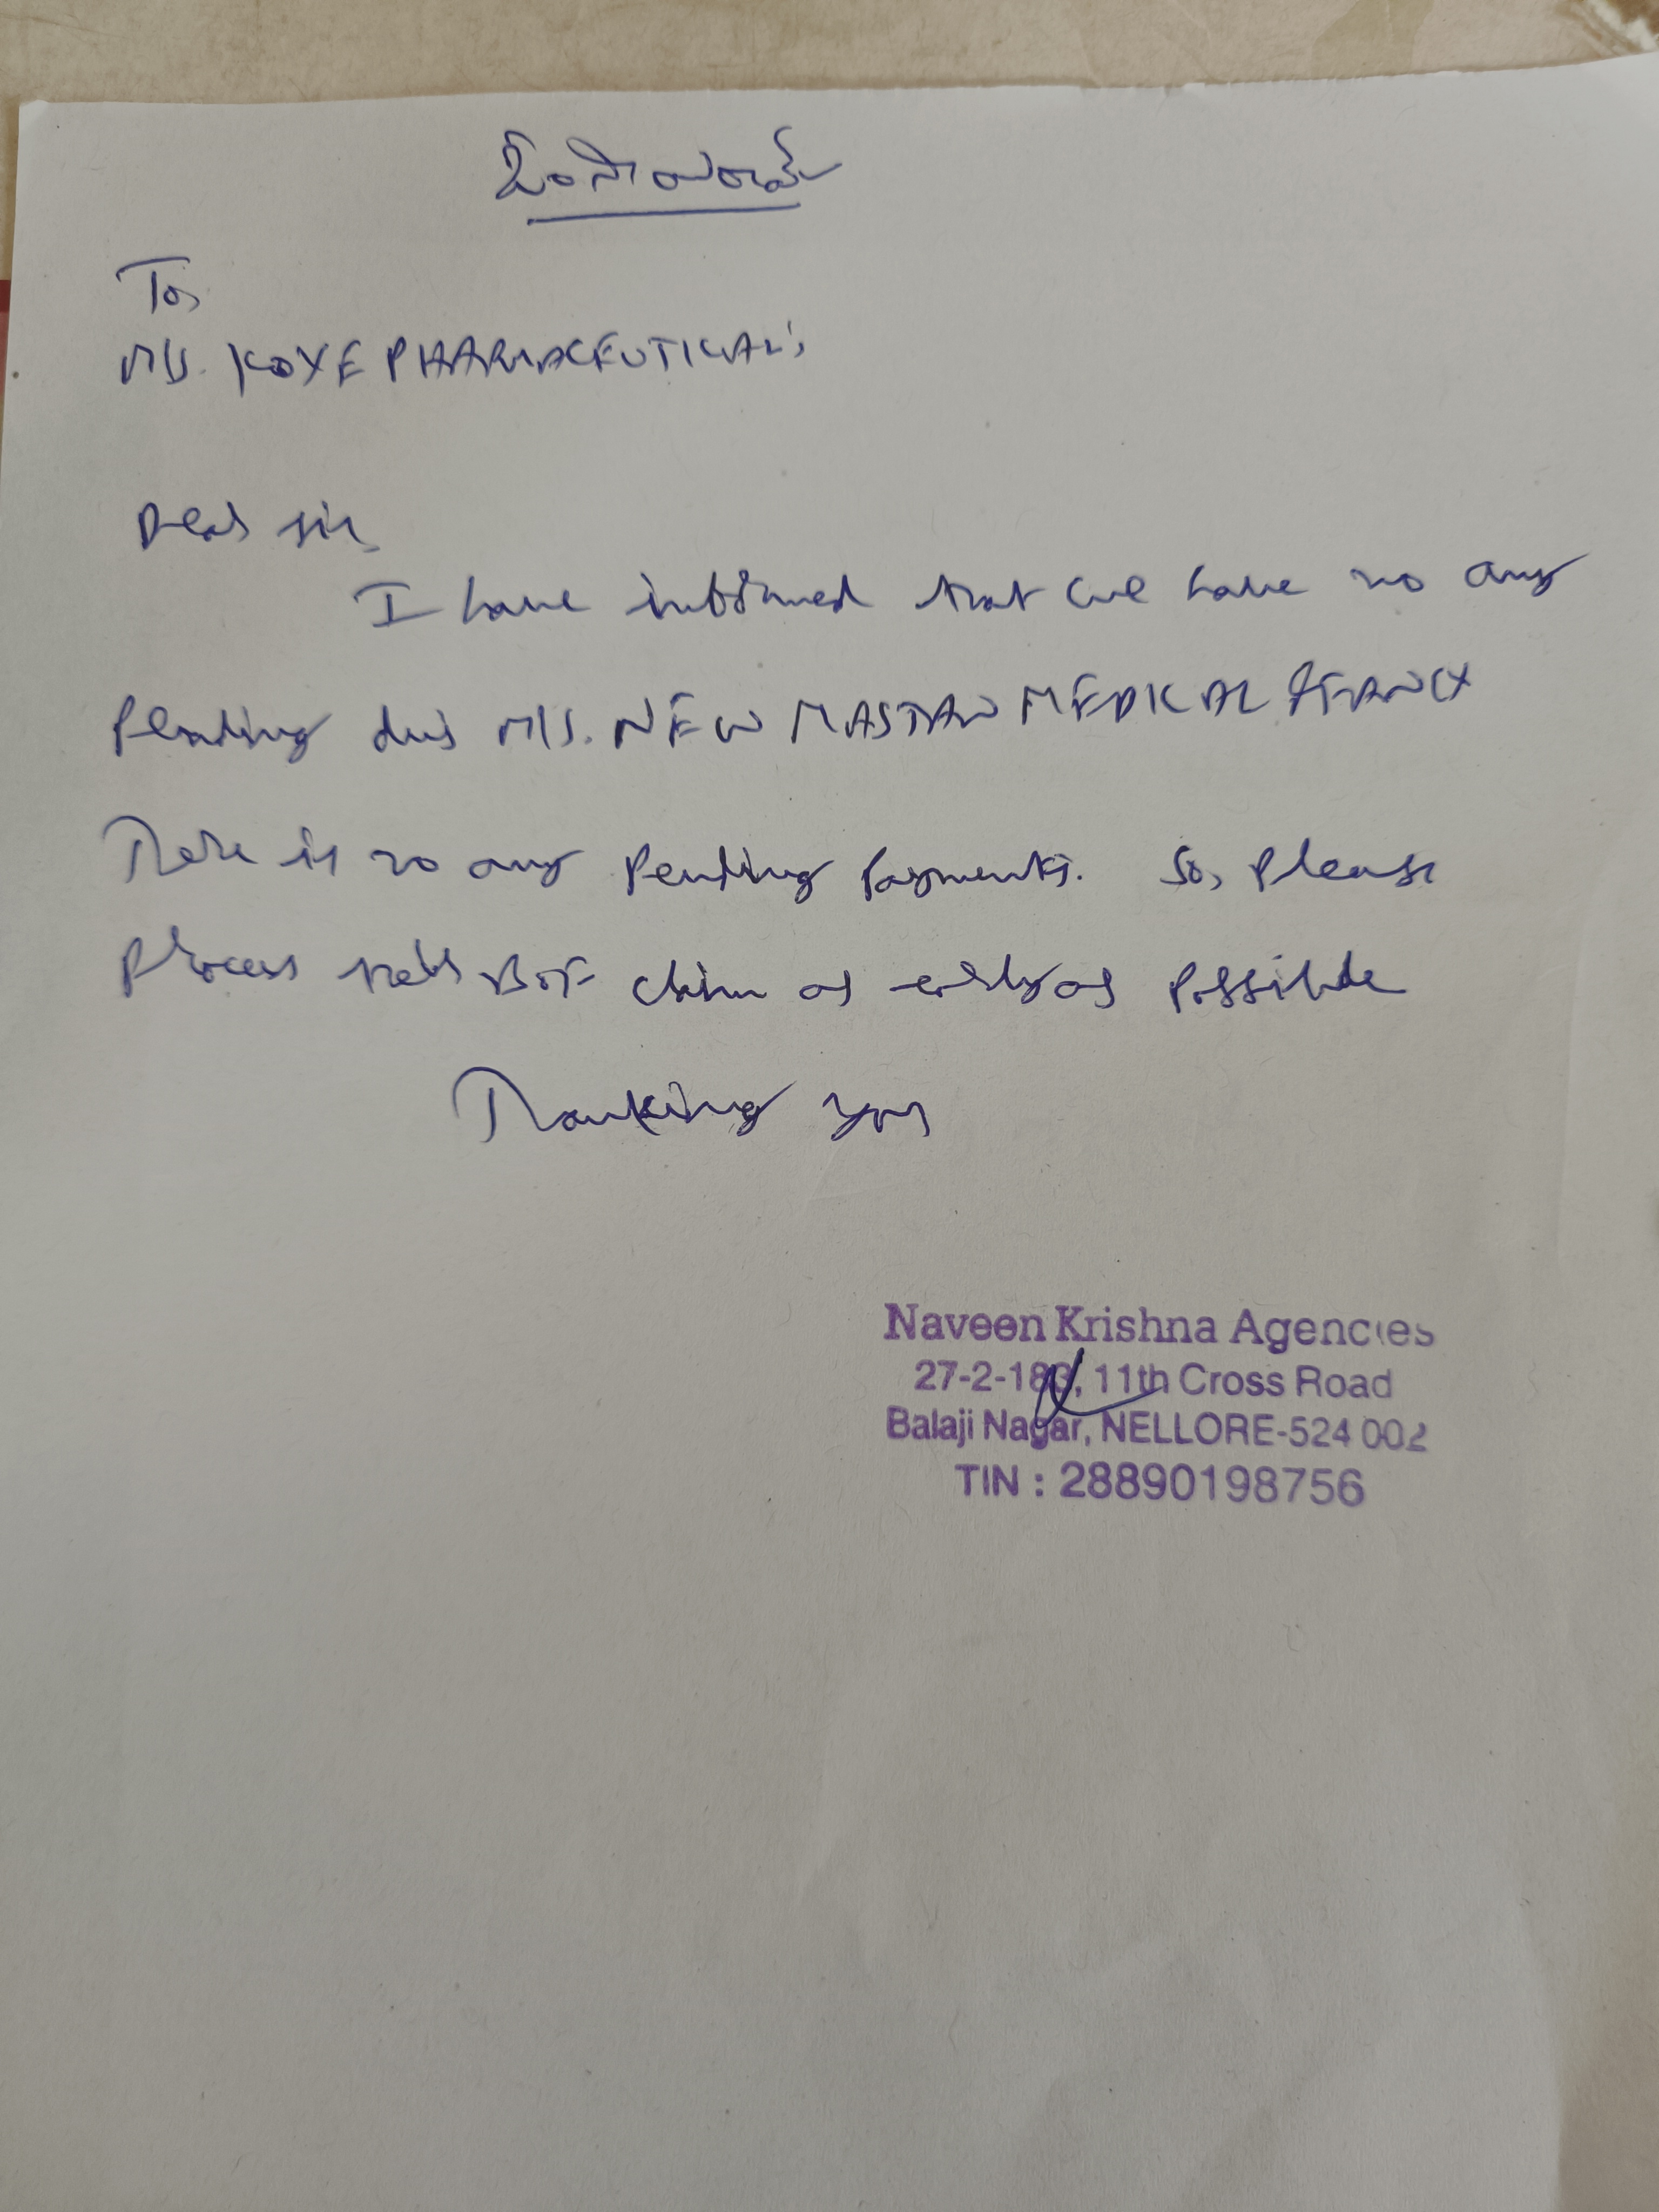 ఓం సాయిరామ్
To,
M/s. KOYE PHARMACEUTICAL's
Dear sir,
I have informed that we have no any
Pending dues M/s. NEW MASTAN MEDICAL AGENCY
There is no any Pending Payments. So, Please
Process claim as early as Possible
Thanking you
Naveen Krishna Agencies
27-2-183, 11th Cross Road
Balaji Nagar, NELLORE-524 002
TIN : 28890198756